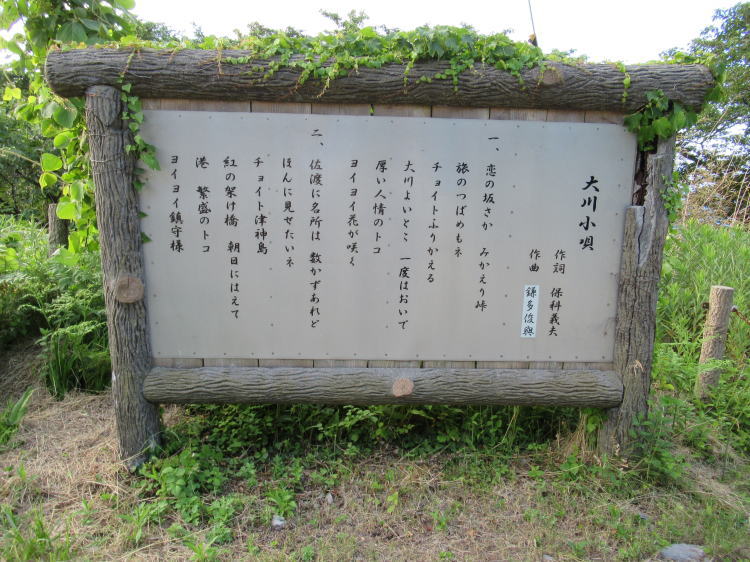 大川小唄
作詞 保科義夫
作曲 鎌多俊與
一、恋の坂さか みかえり峠
旅のつばめもネ
チョイトふりかえる
大川よいとこ 一度はおいで
厚い人情のトコ
ヨイヨイ花が咲く
二、佐渡に名所は 数かずあれど
ほんに見せたいネ
チョイト津神島
紅の架け橋 朝日にはえて
港 繁盛のトコ
ヨイヨイ鎮守様